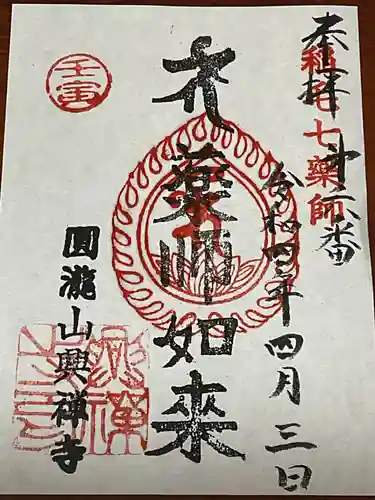 奉拝 第六番
稲毛七薬師
令和四年四月三日
薬師如来
壬寅
圓瀧山興禅寺